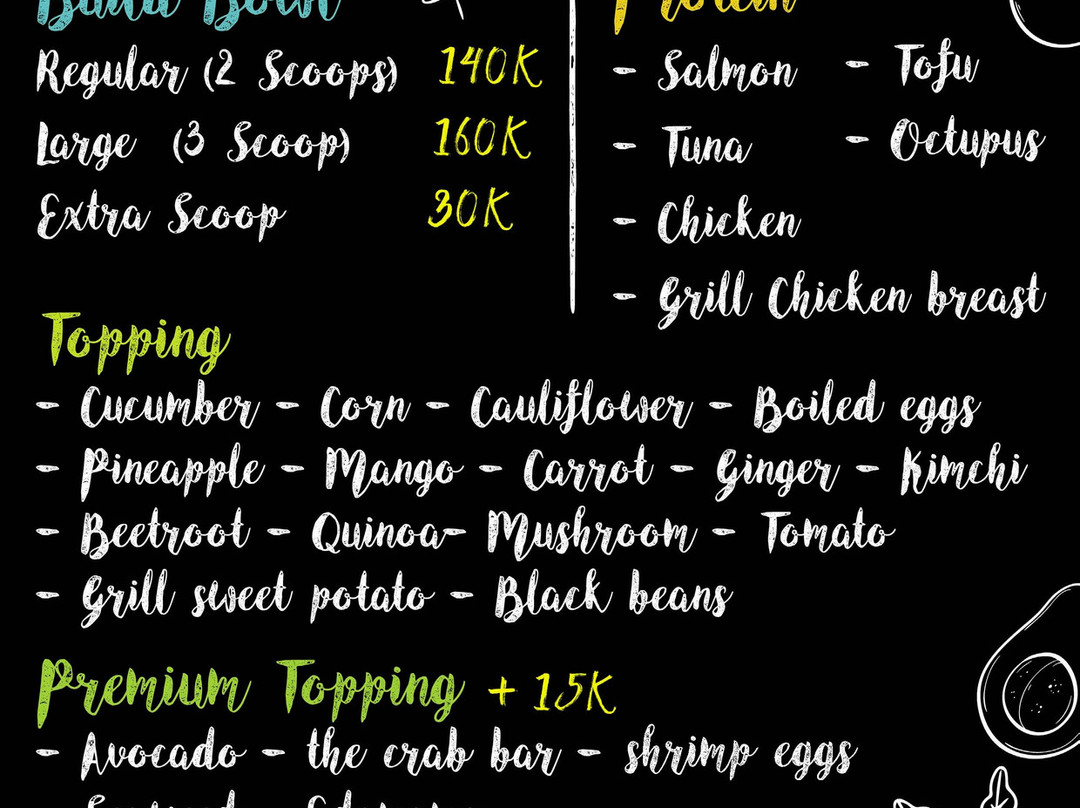 Build Bowl
Regular (2 Scoops) 140K
Large (3 Scoop) 160K
Extra Scoop 30K
Protein
- Salmon - Tofu
- Tuna - Octupus
- Chicken
- Grill Chicken breast
Topping
- Cucumber - Corn - Cauliflower - Boiled eggs
- Pineapple - Mango - Carrot - Ginger - Kimchi
- Beetroot - Quinoa- Mushroom - Tomato
- Grill sweet potato - Black beans
Premium Topping + 15K
- Avocado - the crab bar - shrimp eggs